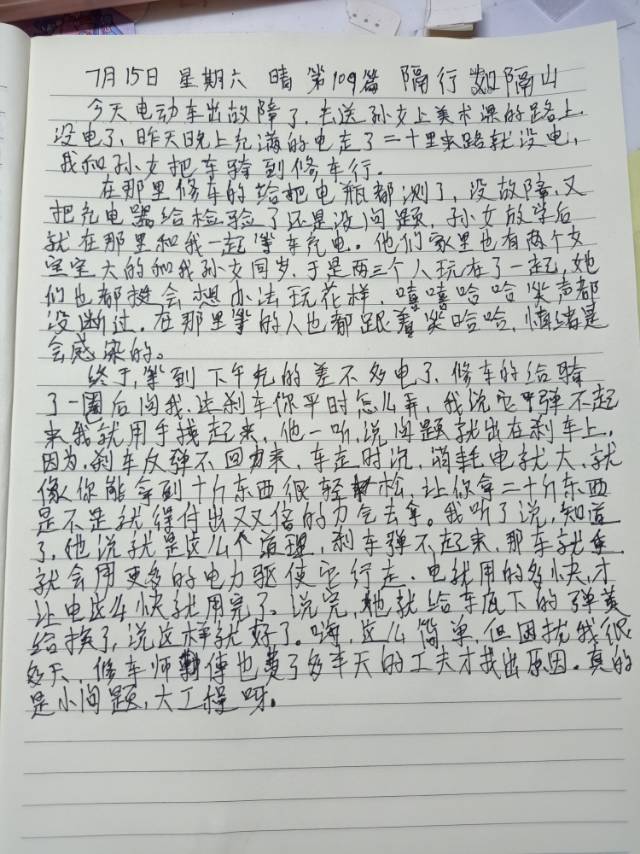 7月15日 星期六 晴 第109篇 隔行如隔山
今天电动车出故障了,去送孙女上美术课的路上,
没电了,昨天晚上充满的电走了二十里来路就没电,
我和孙女把车骑到修车行。
在那里修车的给把电瓶都测了,没故障,又
把充电器给检验了还是没问题,孙女放学后
就在那里和我一起等车充电。他们家里也有两个女
宝宝大的和我孙女同岁,于是两三个人玩在了一起,她
们也都挺会想办法玩花样,嘻嘻哈哈笑声都
没断过,在那里等的人也都跟着笑哈哈,情绪是
会感染的。
终于,等到下午充的差不多电了,修车的给骑
了一圈后问我,这刹车你平时怎么弄,我说它弹不起
来我就用手拽起来,他一听,说问题就出在刹车上,
因为,刹车反弹不回来,车走时沉,消耗电就大,就
像你能拿到十斤东西很轻松,让你拿二十斤东西
是不是就得付出双倍的力气去拿。我听了说,知道
了,他说就是这么个道理,刹车弹不起来,那车就重
就会用更多的电力驱使它行走,电就用的多快,才
让电这么快就用完了,说完,他就给车底下的弹簧
给换了,说这样就好了。嗨,这么简单,但困扰我很
多天,修车师傅也费了多半天的工夫才找出原因,真的
是小问题,大工程呀。